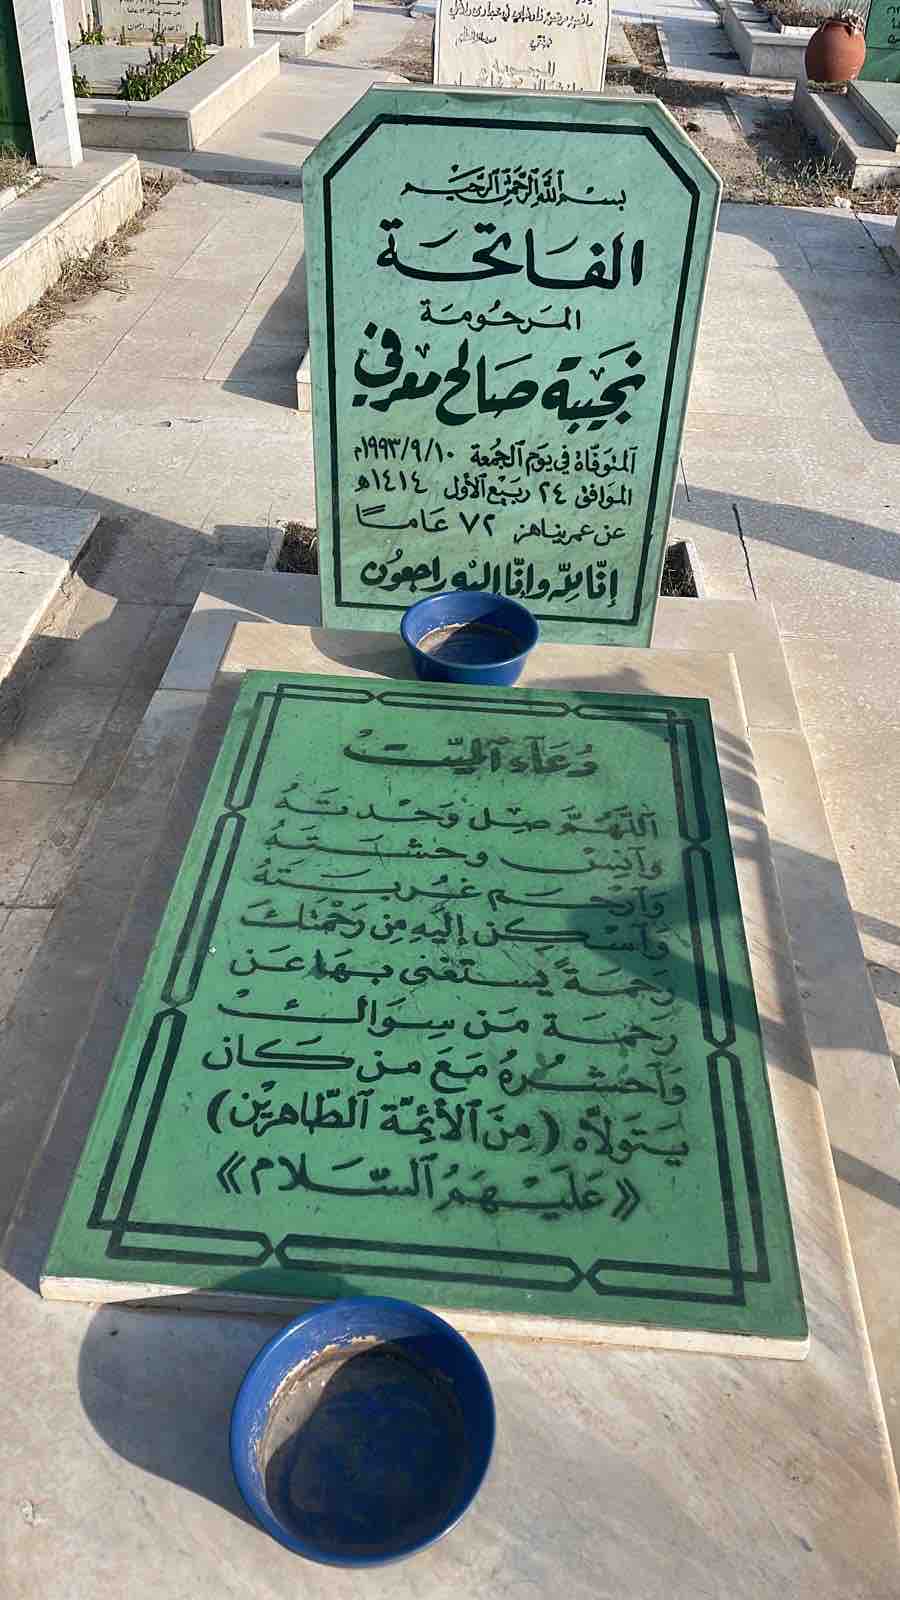 بسم الله الرحمن الرحيم
الفاتحة
المرحومة
نجيبة صالح معرفي
المتوفاة في يوم الجمعة ١٩٩٣/٩/١٠م
الموافق ٢٤ ربيع الأول ١٤١٤ه
عن عمر يناهز ٧٢ عاماً
إنّا لله وإنّا إليه راجعون
دُعَآء الميّت
اَللَّهُمَّ صِل وَحْدَتَهُ
وَآنِسْ وحشَتَهُ
وَآرْحَم غُربَتَهُ
وَأسْكِن إلَيْهِ مِن رَحْمَتِكَ
رَحمَةً يَستغنى بِهَا عَن
رَحمَة مَن سِوَاك
وَآحْشُرهُ مَعَ من كَان
يَتَولاّه (مِنَ الأئِمَّة الطّاهرِيْن)
«عَلَيْهِمُ السَّلام»